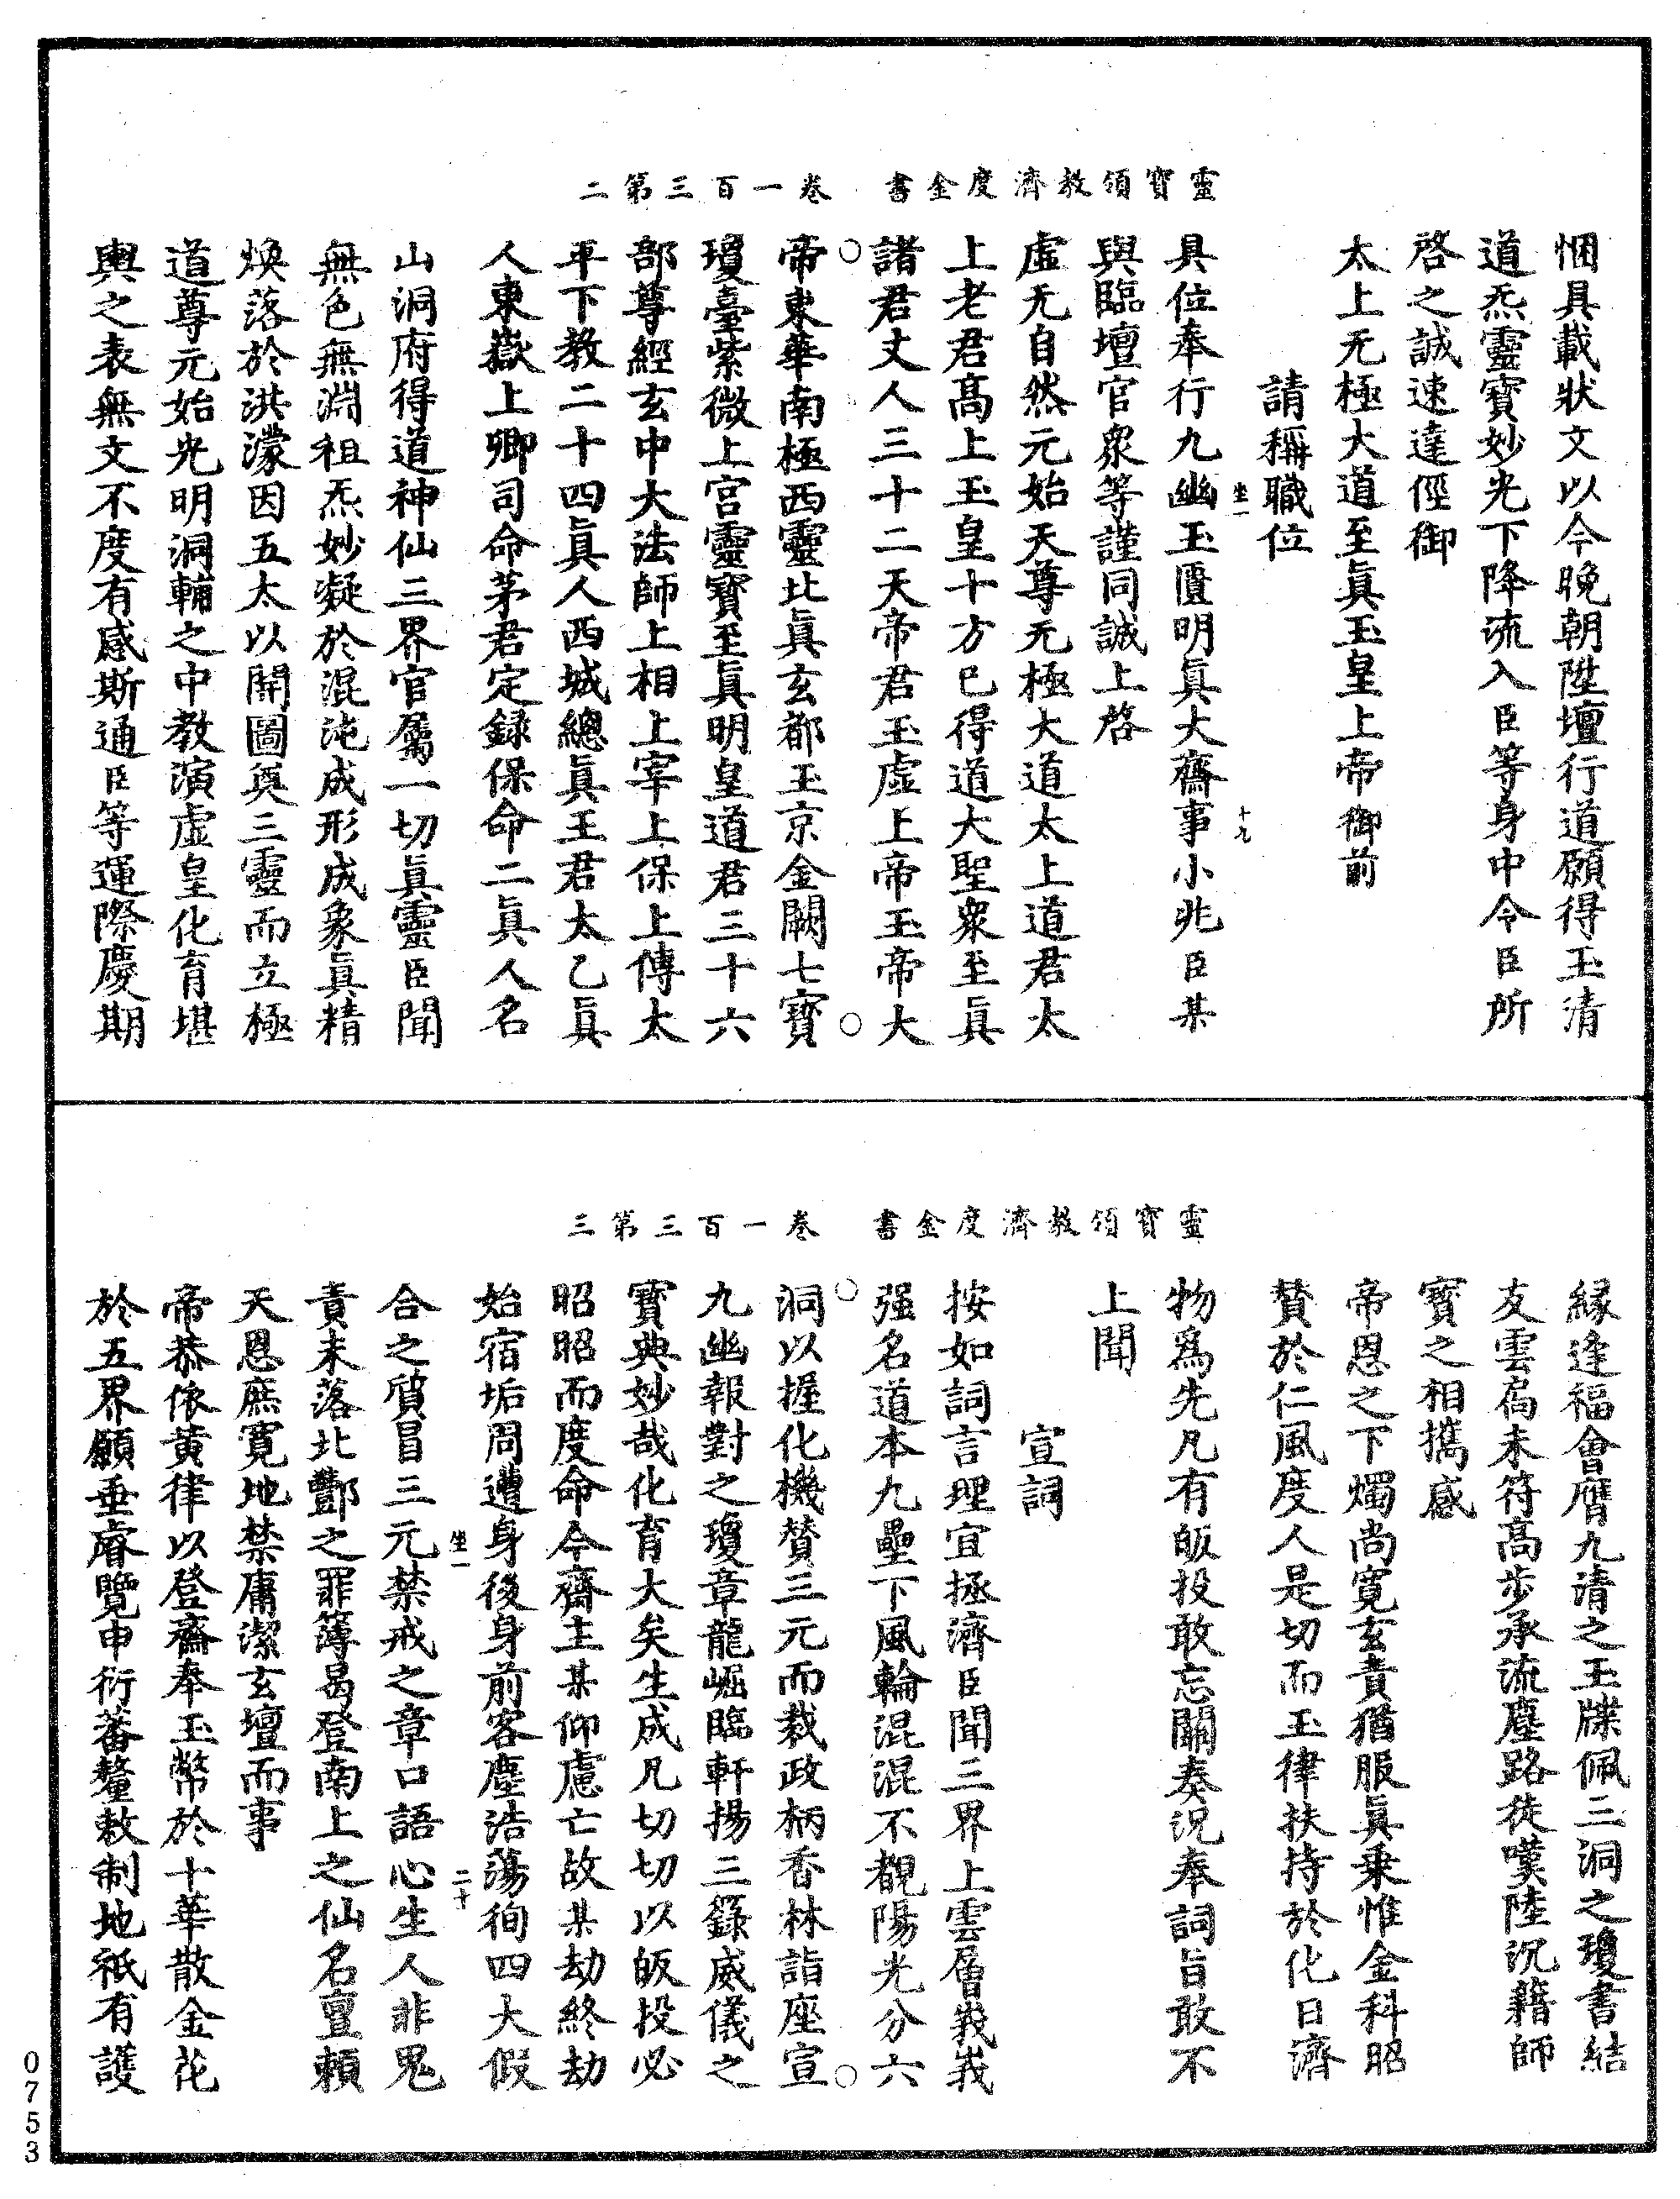 靈寶領教濟度金書　卷一百三第二
悃具載狀文以今晚朝陞壇行道願得玉清
道炁靈寶妙光下降流入臣等身中令臣所
啓之誠速達徑御
太上无極大道至眞玉皇上帝御前
請稱職位
具位奉行九幽玉匱明眞大齋事小兆臣某
與臨壇官衆等謹同誠上啓
虛无自然元始天尊无極大道太上道君太
上老君高上玉皇十方已得道大聖衆至眞
諸君丈人三十二天帝君玉虛上帝玉帝大
帝東華南極西靈北眞玄都玉京金闕七寶
瓊臺紫微上宮靈寶至眞明皇道君三十六
部尊經玄中大法師上相上宰上保上傅太
平下教二十四眞人西城總眞王君太乙眞
人東嶽上卿司命茅君定錄保命二眞人名
山洞府得道神仙三界官屬一切眞靈臣聞
無色無淵祖炁妙凝於混沌成形成象眞精
煥落於洪濛因五太以開圖奠三靈而立極
道尊元始光明洞輔之中教演虛皇化育堪
輿之表無文不度有感斯通臣等運際慶期
坐一
十九
靈寶領教濟度金書　卷一百三第三
緣逢福會膺九清之玉牒佩三洞之瓊書結
友雲扃未符高步承流塵路徒嘆陸沉籍師
寶之相攜感
帝恩之下燭尚寬玄責猶服眞乘惟金科昭
贊於仁風度人是切而玉律扶持於化日濟
物爲先凡有皈投敢忘關奏況奉詞旨敢不
上聞
宣詞
按如詞言理宜拯濟臣聞三界上雲層峩峩
强名道本九壘下風輪混混不覩陽光分六
洞以握化機贊三元而裁政柄香林詣座宣
九幽報對之瓊章龍崛臨軒揚三籙威儀之
寶典妙哉化育大矣生成凡切切以皈投必
昭昭而度命今齋主某仰慮亡故某劫終劫
始宿垢周遭身後身前客塵浩蕩徇四大假
合之質冒三元禁戒之章口語心生人非鬼
責未落北酆之罪簿曷登南上之仙名亶賴
天恩庶寬地禁庸潔玄壇而事
帝恭依黃律以登齋奉玉幣於十華散金花
於五界願垂睿覽申衍蕃釐敕制地祇有護
坐一
二十
0753